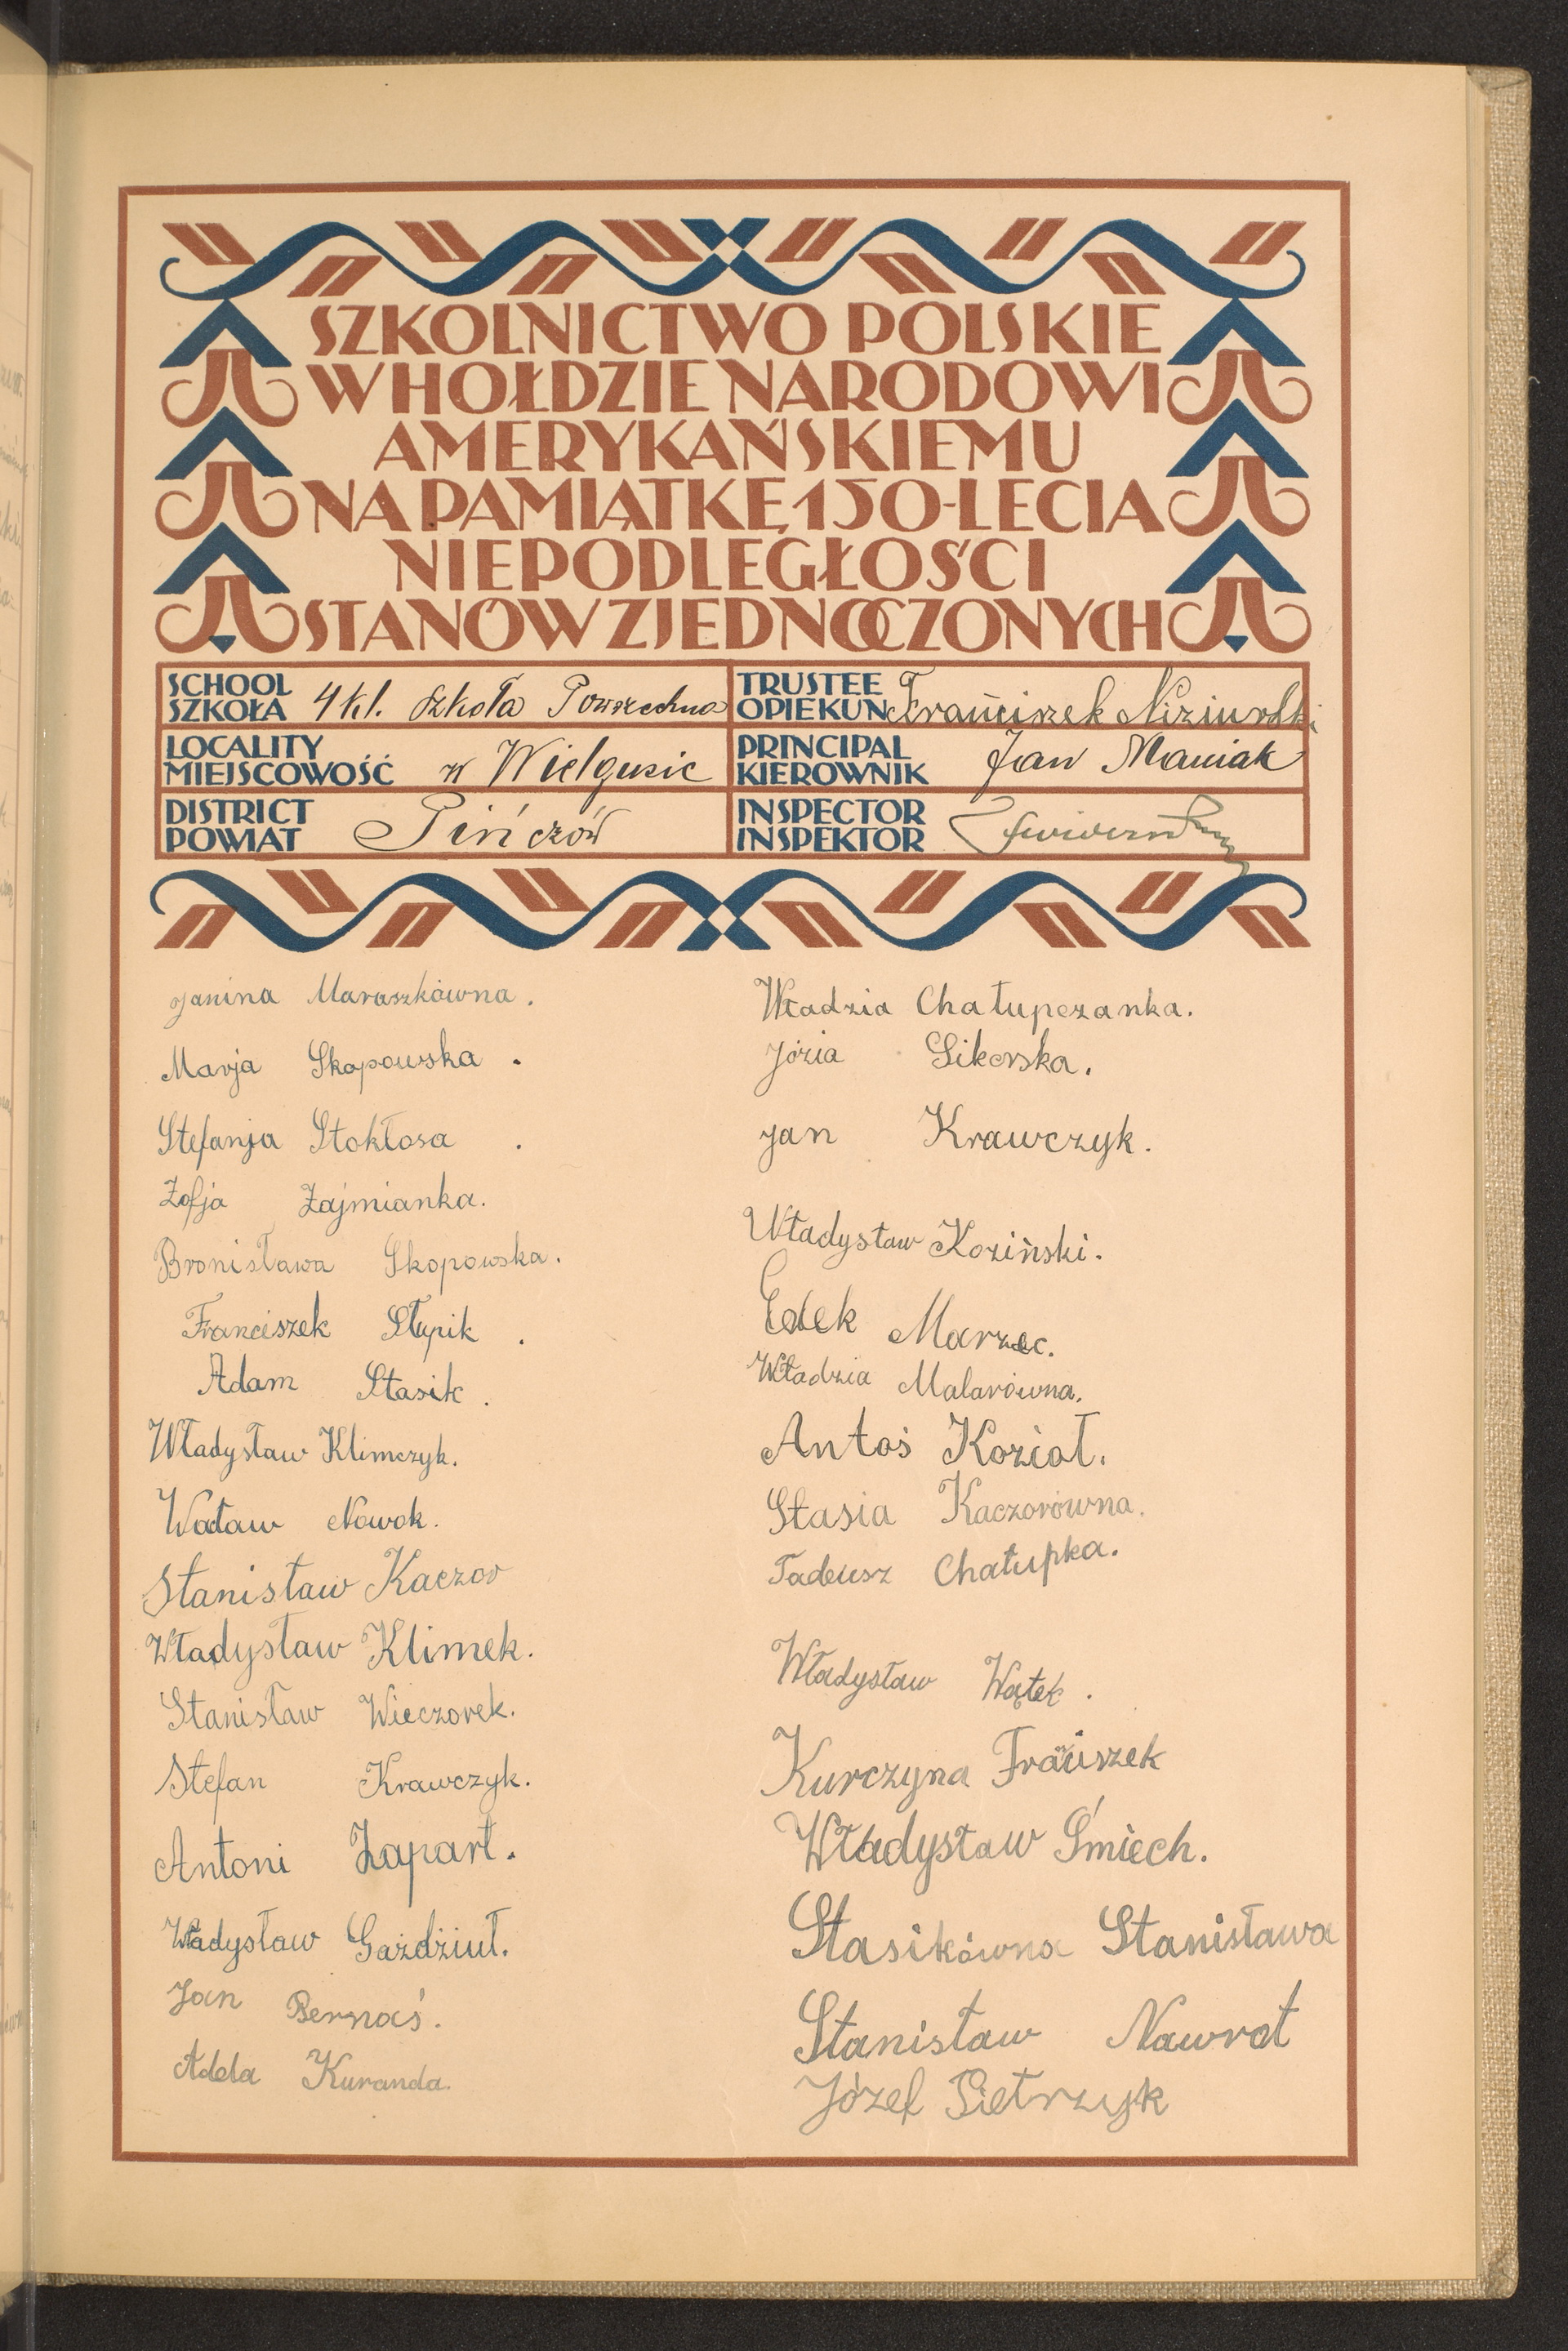 SZKOLNICTWO POLSKIE
W HOŁDZIE NARODOWI
AMERYKAŃSKIEMU
NA PAMIĄTKĘ 150-LECIA
NIEPODLEGŁOŚCI
STANÓW ZJEDNOCZONYCH
SCHOOL
SZKOŁA 4 kl. Szkoła Powszechna
TRUSTEE
OPIEKUN Franciszek Niziurski
LOCALITY
MIEJSCOWOŚĆ w Wielgusie
PRINCIPAL
KIEROWNIK Jan Maniak
DISTRICT
POWIAT Pińczów
INSPECTOR
INSPEKTOR
Janina Maraszkówna.
Marja Skopowska.
Stefanja Stokłosa.
Zofja Zajmianka.
Bronisława Skopowska.
Franciszek Słupik.
Adam Stasik.
Władysław Klimczyk.
Wacław Nowak.
Stanisław Kaczor
Władysław Klimek.
Stanisław Wieczorek.
Stefan Krawczyk.
Antoni Zapart.
Władysław Gaździuł.
Jan Bernaś.
Adela Kuranda.
Władzia Chałupczanka.
Józia Sikorska.
Jan Krawczyk.
Władysław Koziński.
Edek Marzec.
Władzia Malarówna.
Antoś Kozioł.
Stasia Kaczorówna.
Tadeusz Chałupka.
Władysław Wątek.
Kurczyna Franciszek
Władysław Śmiech.
Stasikówna Stanisława
Stanisław Nawrot
Józef Pietrzyk